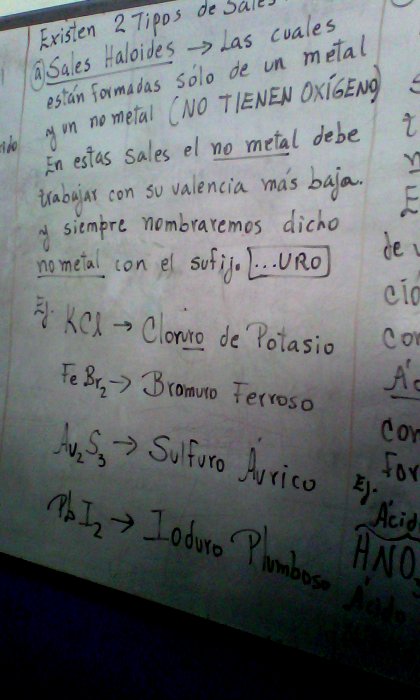 Existen 2 Tipos de Sales
ⓐ Sales Haloides → Las cuales
están formadas sólo de un metal
y un no metal (NO TIENEN OXÍGENO)
En estas sales el no metal debe
trabajar con su valencia más baja.
y siempre nombraremos dicho
no metal con el sufij. ...URO
Ej. KCl → Cloruro de Potasio
FeBr₂ → Bromuro Ferroso
Au₂S₃ → Sulfuro Áurico
PbI₂ → Ioduro Plumboso
de
con
for
Ej.
Ácid
HNO
Ácido